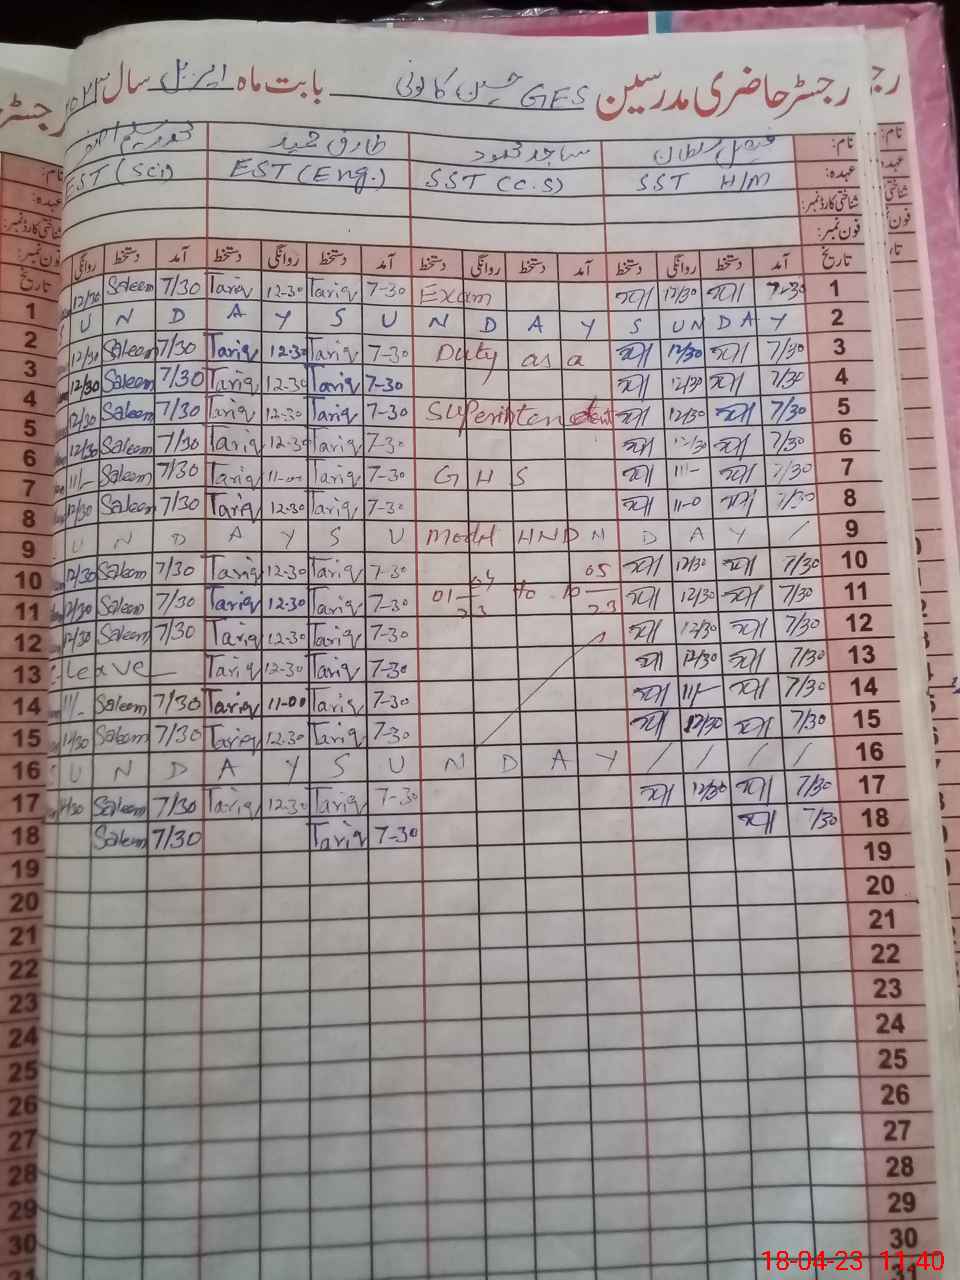 رجسٹر حاضری مدرسین GES حسین کالونی بابت ماہ اپریل سال ۲۰۲۳
نام: فیصل سلطان ساجد محمود طارق حمید محمد سلیم
عہدہ: SST H/M SST (C.S) EST (Eng.) EST (Sci)
شناختی کارڈ نمبر:
فون نمبر:
تاریخ آمد دستخط روانگی دستخط آمد دستخط روانگی دستخط آمد دستخط روانگی دستخط آمد دستخط روانگی
1 12/30 Saleem 7/30 Tariq 12-30 Tariq 7-30 Exam 12/30 7-30 1
2 U N D A Y S U N D A Y S U N D A Y 2
3 12/30 Saleem 7/30 Tariq 12-30 Tariq 7-30 Duty as a 12/30 7/30 3
4 12/30 Saleem 7/30 Tariq 12-30 Tariq 7-30 12/30 7/30 4
5 12/30 Saleem 7/30 Tariq 12-30 Tariq 7-30 12/30 7/30 5
6 12/30 Saleem 7/30 Tariq 12-30 Tariq 7-30 12/30 7/30 6
7 11/- Saleem 7/30 Tariq 11-00 Tariq 7-30 G H S 11/- 7/30 7
8 12/30 Saleem 7/30 Tariq 12-30 Tariq 7-30 11-0 7/30 8
9 U N D A Y S U Model HND N D A Y / 9
10 12/30 Saleem 7/30 Tariq 12-30 Tariq 7-30 05 12/30 7/30 10
11 12/30 Saleem 7/30 Tariq 12-30 Tariq 7-30 01-04-23 to 10-23 12/30 7/30 11
12 12/30 Saleem 7/30 Tariq 12-30 Tariq 7-30 12/30 7/30 12
13 Leave Tariq 12-30 Tariq 7-30 12/30 7/30 13
14 11/- Saleem 7/30 Tariq 11-00 Tariq 7-30 11/- 7/30 14
15 Saleem 7/30 Tariq 12-30 Tariq 7-30 12/30 7/30 15
16 S U N D A Y S U N D A Y / / / / 16
17 Saleem 7/30 Tariq 12-30 Tariq 7-30 12/30 7/30 17
18 Saleem 7/30 Tariq 7-30 7/30 18
19 19
20 20
21 21
22 22
23 23
24 24
25 25
26 26
27 27
28 28
29 29
30 30
18-04-23 11:40